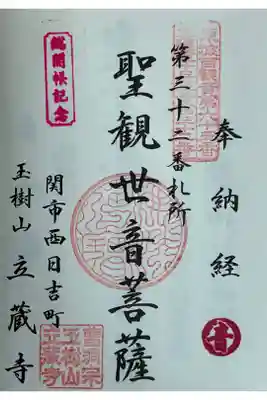 奉納経
第三十二番札所
聖観世音菩薩
関市西日吉町
玉樹山 立蔵寺
総開帳記念
曹洞宗
玉樹山
立蔵寺